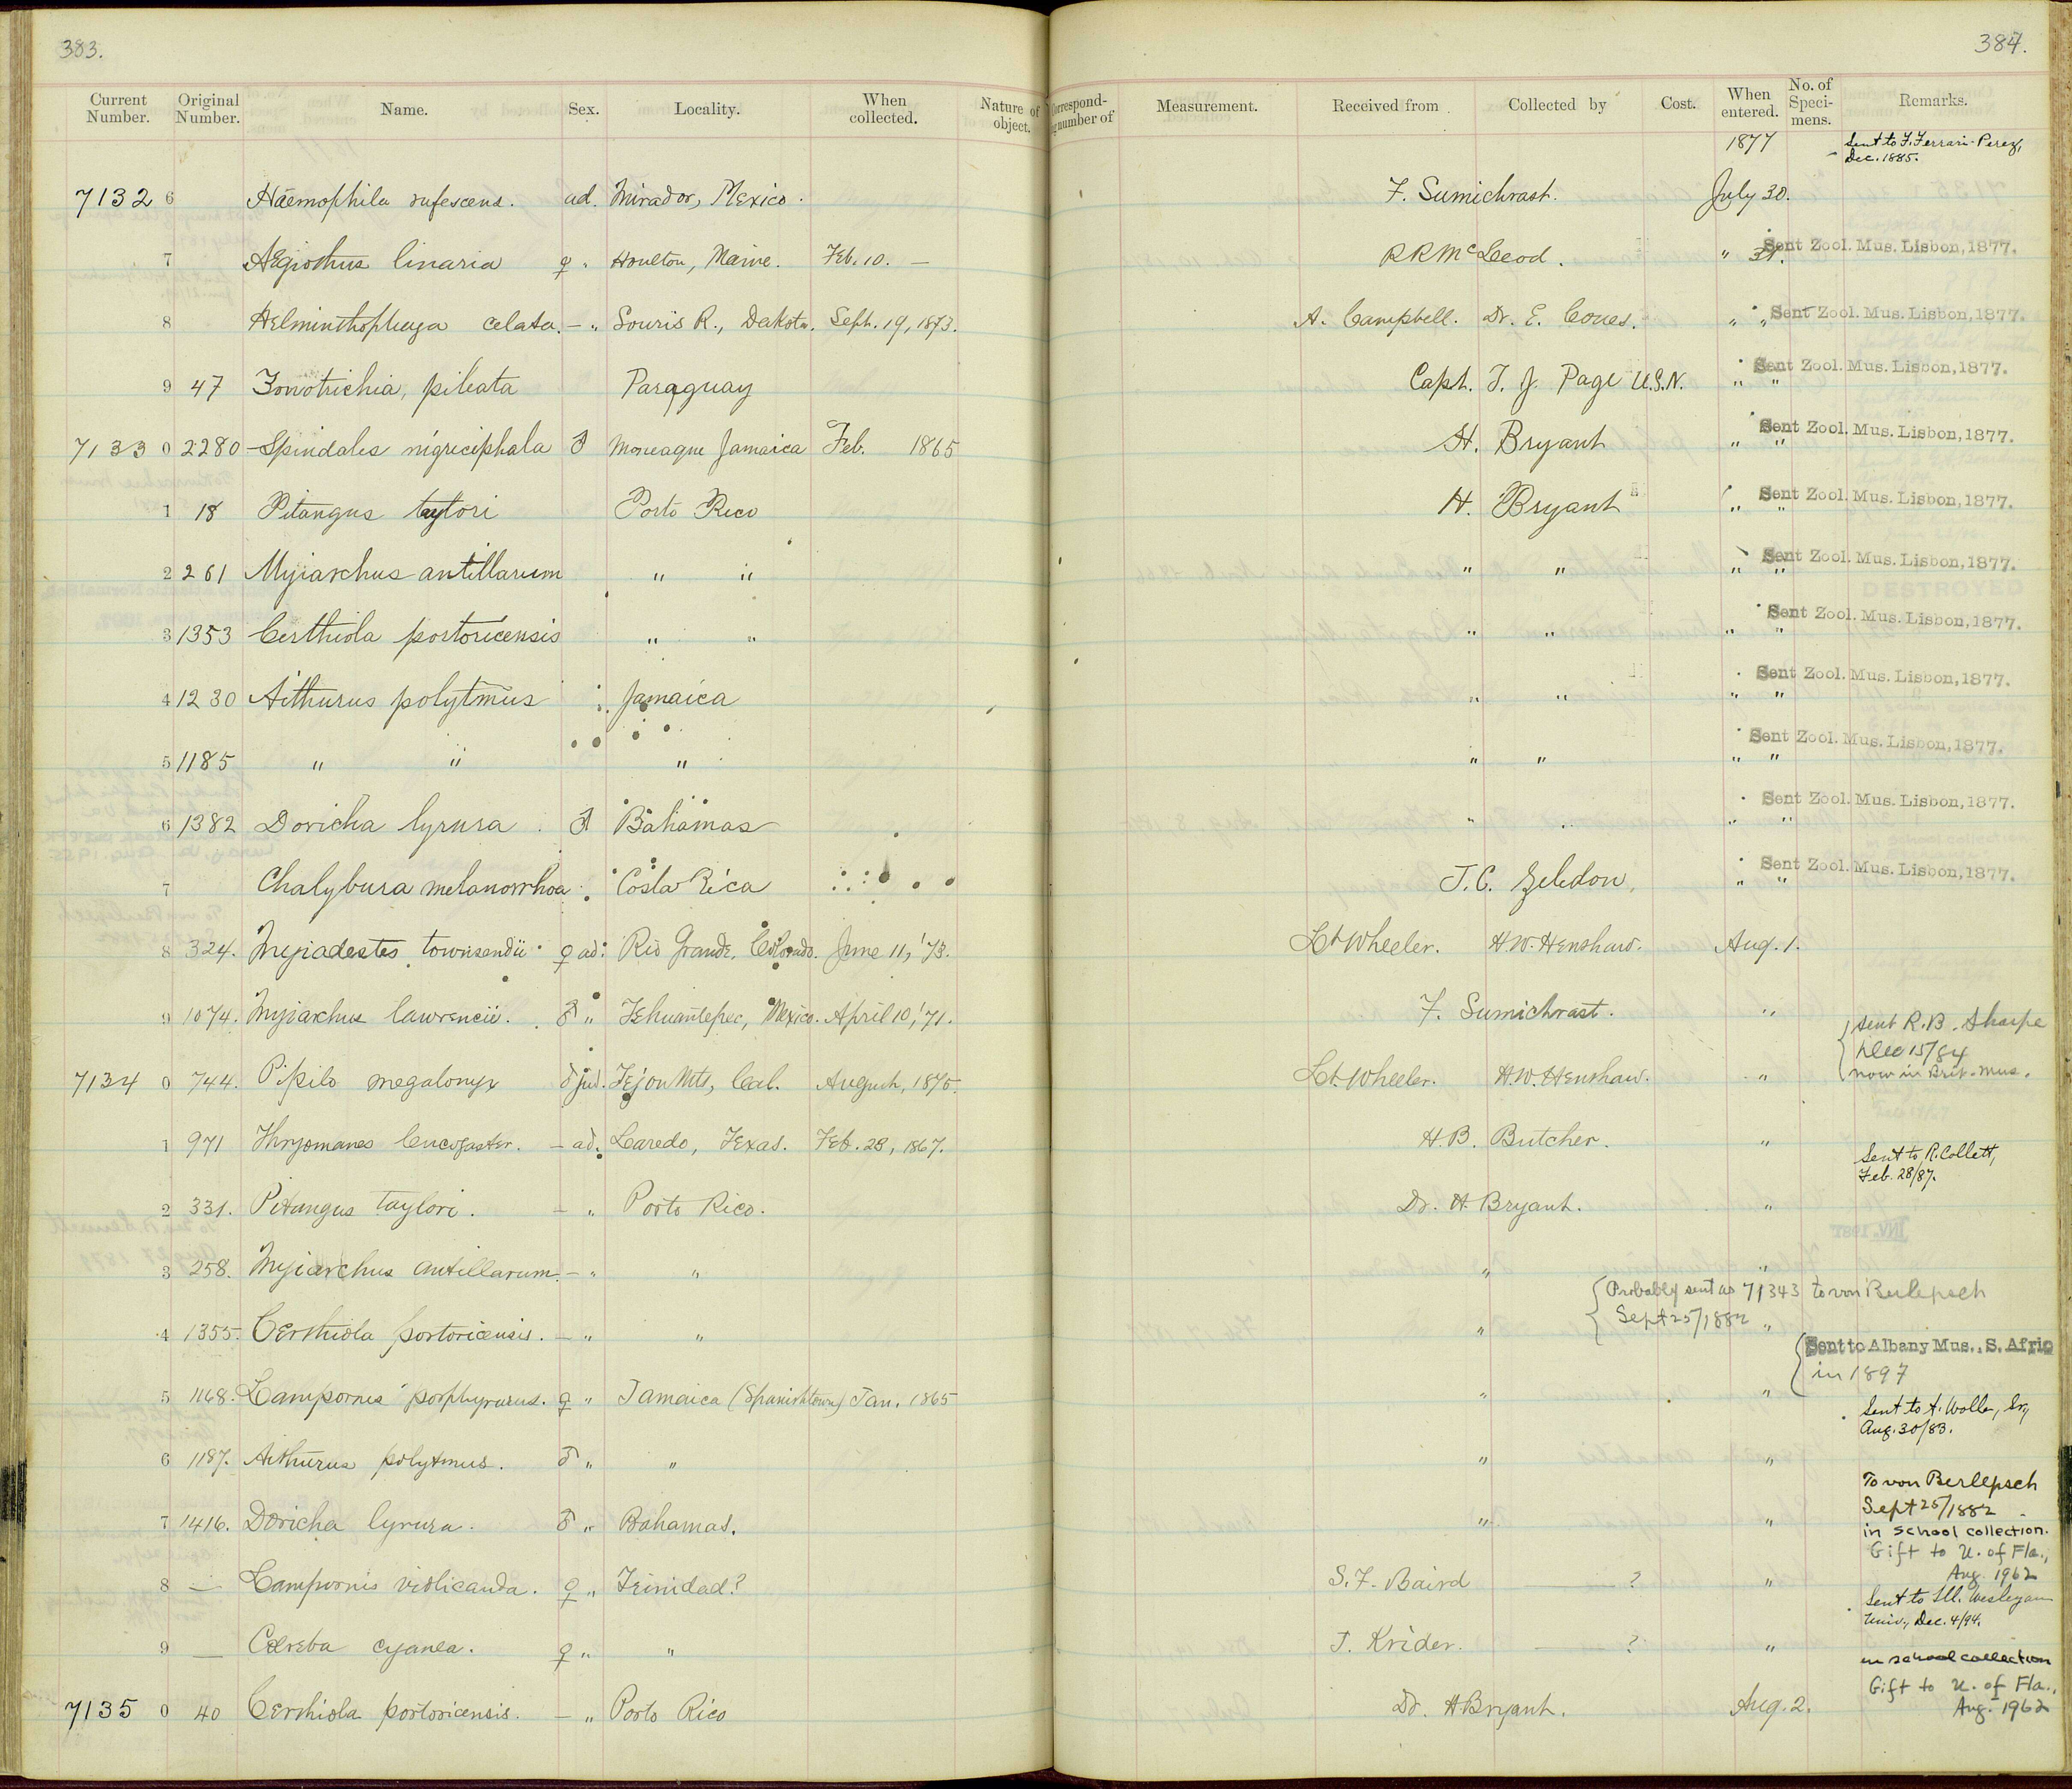 383.
384.
Current Number. Original Number. Name. Sex. Locality. When collected. Nature of object. Correspond- number of Measurement. Received from Collected by Cost. When entered. No. of Speci- mens. Remarks.
1877 Sent to F. Ferrari-Perez,
Dec. 1885.
7132 6 Haemophila rufescens. ad. Mirador, Mexico. F. Sumichrast. July 30.
7 Ægiothus linaria ♀ " Houlton, Maine. Feb. 10. — R R McLeod. " 31. Sent Zool. Mus. Lisbon, 1877.
8 Helminthophaga celata. — " Souris R., Dakota. Sept. 19, 1873. A. Campbell. Dr. E. Coues. " " Sent Zool. Mus. Lisbon, 1877.
9 47 Zonotrichia, pileata Paraguay Capt. T. J. Page U.S.N. " " Sent Zool. Mus. Lisbon, 1877.
7133 0 2280 Spindalis nigricephala ♂ Moneague Jamaica Feb. 1865 H. Bryant " " Sent Zool. Mus. Lisbon, 1877.
1 18 Pitangus taylori Porto Rico H. Bryant " " Sent Zool. Mus. Lisbon, 1877.
2 261 Myiarchus antillarum " " " " " " Sent Zool. Mus. Lisbon, 1877.
3 1353 Certhiola portoricensis " " " " " " Sent Zool. Mus. Lisbon, 1877.
4 1230 Aithurus polytmus Jamaica " " " " Sent Zool. Mus. Lisbon, 1877.
5 1185 " " " " " " " Sent Zool. Mus. Lisbon, 1877.
6 1382 Doricha lyrura. ♂ Bahamas " " " " Sent Zool. Mus. Lisbon, 1877.
7 Chalybura melanorrhoa Costa Rica J. C. Zeledon. " " Sent Zool. Mus. Lisbon, 1877.
8 324. Myiadestes townsendii ♀ ad. Rio Grande, Colorado. June 11, '73. Lt Wheeler. H.W. Henshaw. Aug. 1.
9 1074. Myiarchus lawrencii. ♂ " Tehuantepec, Mexico. April 10, '71. F. Sumichrast. "
sent R. B. Sharpe
Dec 15/84
now in Brit. Mus.
7134 0 744. Pipilo megalonyx ♂ jud. Tejon Mts, Cal. August, 1875. Lt. Wheeler. H.W. Henshaw. "
1 971 Thryomanes leucogaster. — ad. Laredo, Texas. Feb. 28, 1867. H. B. Butcher. "
Sent to R. Collett,
Feb. 28/87.
2 331. Pitangus taylori. — " Porto Rico. Dr. H. Bryant. "
3 258. Myiarchus antillarum. — " " " "
Probably sent as 71343 to von Berlepsch
Sept 25/1882
4 1355. Certhiola portoricensis. — " " " "
Sent to Albany Mus., S. Afric
in 1897
5 1168. Lampornis porphyrurus. ♀ " Jamaica (Spanishtown) Jan. 1865 " "
Sent to A. Wolle, Sr,
Aug. 30/83.
6 1187. Aithurus polytmus. ♂ " " " "
To von Berlepsch
Sept 25/1882
7 1416. Doricha lyrura. ♂ " Bahamas. " "
in school collection.
Gift to U. of Fla.,
Aug. 1962
8 — Lampornis violicauda. ♀ " Trinidad? S. F. Baird — ? "
Sent to Ill. Wesleyan
Univ., Dec. 4/94.
9 — Cœreba cyanea. ♀ " " J. Krider. — ? "
in school collection
Gift to U. of Fla.,
Aug. 1962
7135 0 40 Certhiola portoricensis. — " Porto Rico Dr. H Bryant. Aug. 2.